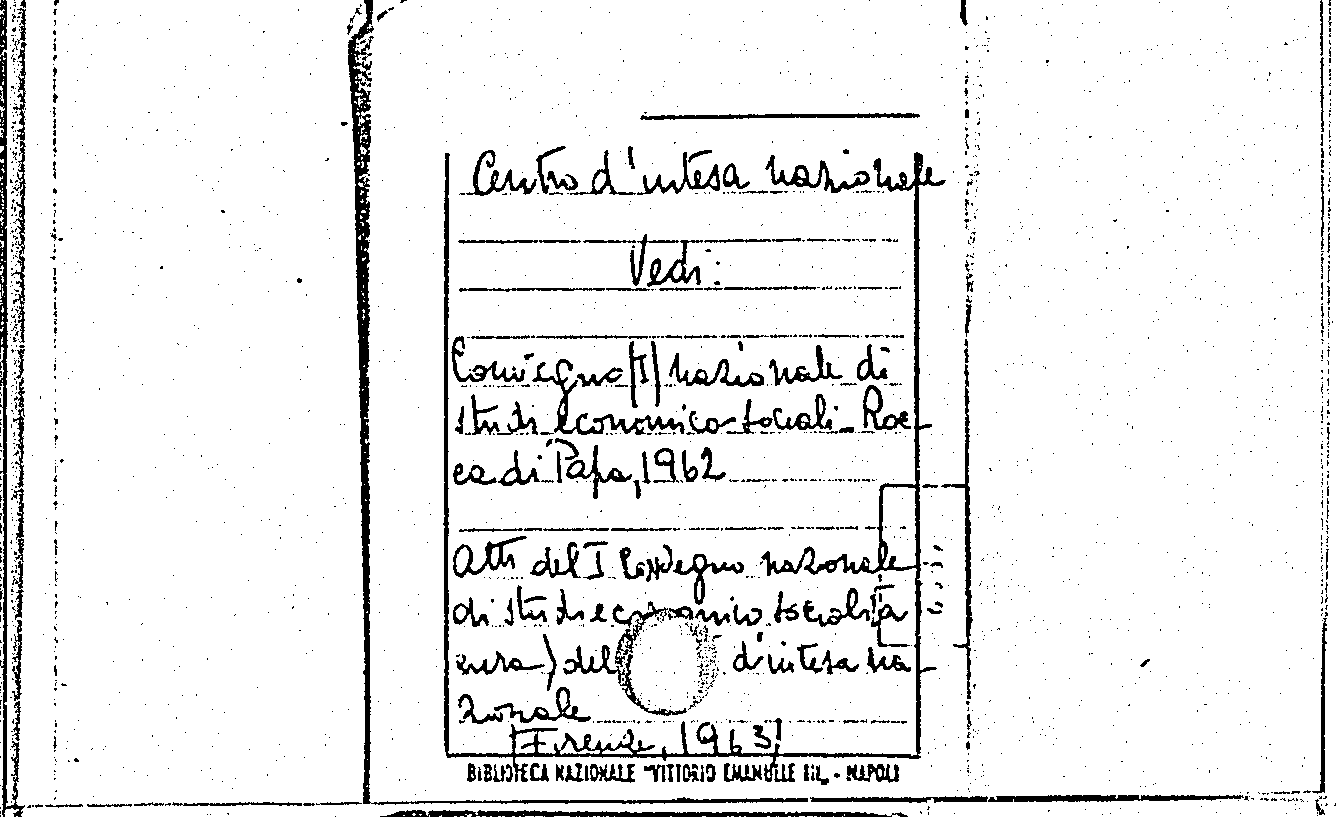 Centro d'intesa nazionale
Vedi:
Convegno (I) nazionale di
studi economico-sociali - Roc-
ca di Papa, 1962
Atti del I Convegno nazionale
di studi economico sociali (a
cura) del d'intesa na-
zionale
Firenze, 1963
BIBLIOTECA NAZIONALE "VITTORIO EMANUELE III" - NAPOLI